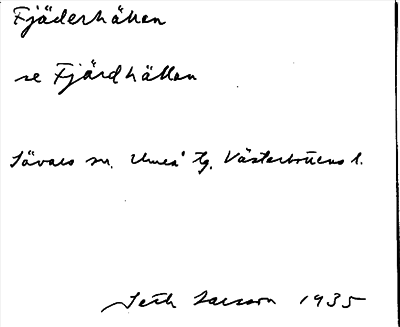 Fjäderhällan
se Fjärdhällan
Sävars sn. Umeå tg. Västerbottens l.
Seth Larsson 1935